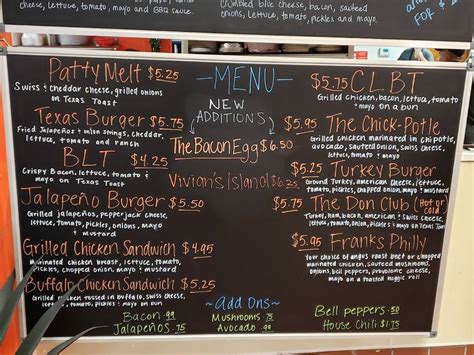 lettuce, tomato, pickles,
mayo and BBQ sauce.
crumbled blue cheese, bacon, sauteed
onions, lettuce, tomato, pickles and mayo.
FOR $
Patty Melt $5.25
Swiss & cheddar cheese, grilled onions
on Texas Toast
Texas Burger $5.75
Fried Jalapeños & onion strings, cheddar,
lettuce, tomato and ranch
BLT $4.25
Crispy Bacon, lettuce, tomato &
mayo on Texas Toast
Jalapeño Burger $5.50
Grilled jalapeños, pepper jack cheese,
lettuce, tomato, pickles, onions, mayo
& mustard
Grilled Chicken Sandwich $4.95
Marinated chicken breast, lettuce, tomato,
pickles, chopped onion, mayo & mustard
Buffalo Chicken Sandwich $5.25
Grilled chicken tossed in buffalo, swiss cheese,
lettuce, tomato, pickles & mayo on bun
-MENU-
NEW
ADDITIONS
The Bacon Egg $6.50
Vivian's Island $6.25
$5.75 CLBT
Grilled chicken, bacon, lettuce, tomato
& mayo on a bun
$5.95 The Chick-Potle
Grilled chicken marinated in chipotle,
avocado, sauteed onion, swiss cheese,
lettuce, tomato & mayo
$5.25 Turkey Burger
Ground turkey, american cheese, lettuce,
tomato, pickles, chopped onion, mayo & mustard
$5.75 The Don Club (Hot or Cold)
Turkey, ham, bacon, american & Swiss cheese,
lettuce, tomato, onion, pickles & mayo on Texas Toast
$5.95 Franks Philly
Your choice of angus roast beef or chopped
marinated chicken, sauteed mushrooms,
onions, bell peppers, provolone cheese,
mayo on a toasted hoagie roll
~Add Ons~
Bacon .99
Mushrooms .75
Bell peppers .50
Jalapeños .75
Avocado .99
House Chili $1.75